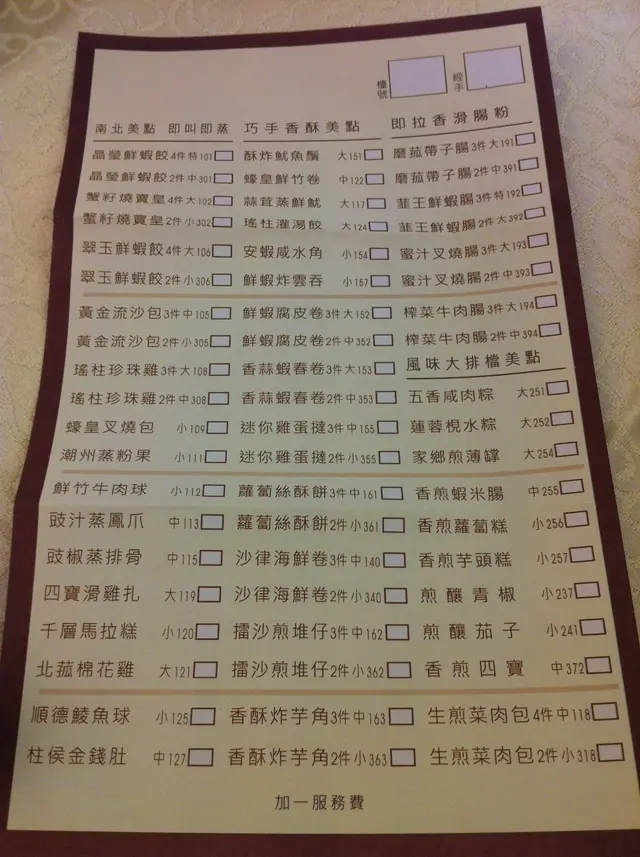 檯號
經手
南北美點 即叫即蒸
晶瑩鮮蝦餃4件特101
晶瑩鮮蝦餃2件中301
蟹籽燒賣皇4件大102
蟹籽燒賣皇2件小302
翠玉鮮蝦餃4件大106
翠玉鮮蝦餃2件小306
黃金流沙包3件中105
黃金流沙包2件小305
瑤柱珍珠雞3件大108
瑤柱珍珠雞2件中308
蠔皇叉燒包 小109
潮州蒸粉果 小111
鮮竹牛肉球 小112
豉汁蒸鳳爪 中113
豉椒蒸排骨 中115
四寶滑雞扎 大119
千層馬拉糕 小120
北菰棉花雞 大121
順德鯪魚球 小125
柱侯金錢肚 中127
巧手香酥美點
酥炸魷魚鬚 大151
蠔皇鮮竹卷 中122
蒜茸蒸鮮魷 大117
瑤柱灌湯餃 大124
安蝦咸水角 小154
鮮蝦炸雲吞 小157
鮮蝦腐皮卷3件大152
鮮蝦腐皮卷2件中352
香蒜蝦春卷3件大153
香蒜蝦春卷2件中353
迷你雞蛋撻3件中155
迷你雞蛋撻2件小355
蘿蔔絲酥餅3件中161
蘿蔔絲酥餅2件小361
沙律海鮮卷3件中140
沙律海鮮卷2件小340
擂沙煎堆仔3件中162
擂沙煎堆仔2件小362
香酥炸芋角3件中163
香酥炸芋角2件小363
即拉香滑腸粉
磨菰帶子腸3件大191
磨菰帶子腸2件中391
韮王鮮蝦腸3件特192
韮王鮮蝦腸2件大392
蜜汁叉燒腸3件大193
蜜汁叉燒腸2件中393
榨菜牛肉腸3件大194
榨菜牛肉腸2件中394
風味大排檔美點
五香咸肉粽 大251
蓮蓉梘水粽 大252
家鄉煎薄罉 大254
香煎蝦米腸 中255
香煎蘿蔔糕 小256
香煎芋頭糕 小257
煎釀青椒 小237
煎釀茄子 小241
香煎四寶 中372
生煎菜肉包4件中118
生煎菜肉包2件小318
加一服務費